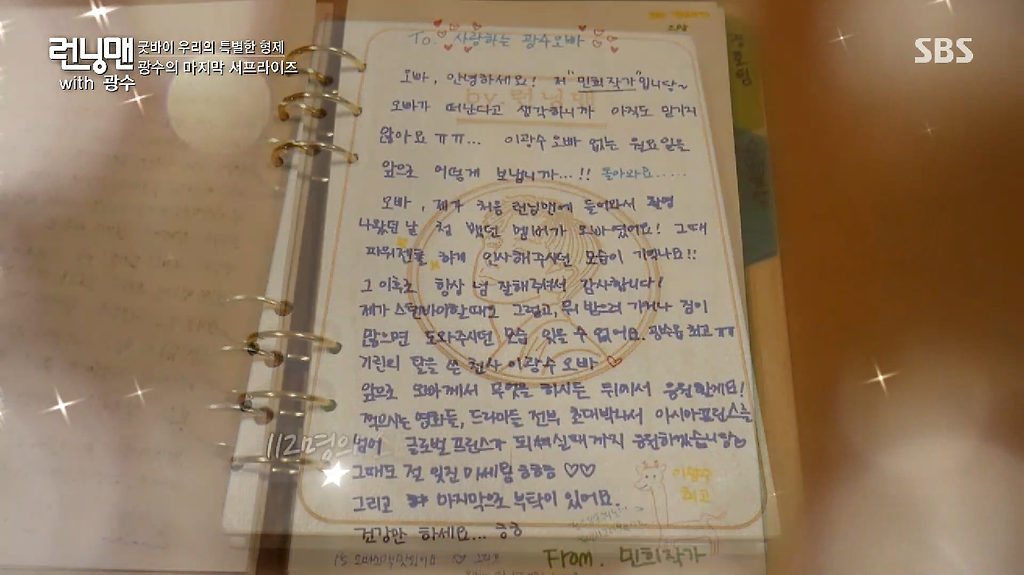 런닝맨 굿바이 우리의 특별한 형제
with 광수 광수의 마지막 서프라이즈
SBS
To. 사랑하는 광수오빠
오빠, 안녕하세요! 저 "민희작가"입니당~
by. 런닝맨
오빠가 떠난다고 생각하니까 아직도 믿기지
않아요 ㅠㅠ... 이광수오빠 없는 월요일을
앞으로 어떻게 보냅니까...!! 돌아와요.....
오빠, 제가 처음 런닝맨에 들어와서 촬영
나왔던 날 첨 뵀던 멤버가 오빠였어요! 그때
파워 하게 인사해주시던 모습이 기억나요!!
그 이후로 항상 넘 잘해주셔서 감사합니다!
제가 스탠바이할때도 그렇고, 뭐 받으러 가거나 짐이
많으면 도와주시던 모습 잊을 수 없어요. 광수옵 최고 ㅠㅠ
기린의 탈을 쓴 천사 이광수오빠 ♡
앞으로 오빠께서 무엇을 하시든 뒤에서 응원할게요!
찍으시는 영화들, 드라마들 전부 초대박나서 아시아프린스를
넘어 글로벌프린스가 되실때까지 응원하겠습니당
그때도 절 잊진 마세욤 ㅎㅎㅎ ♡♡
그리고 마지막으로 부탁이 있어요.
건강만 하세요... ㅎㅎ
이광수
최고
112명의
From. 민희작가